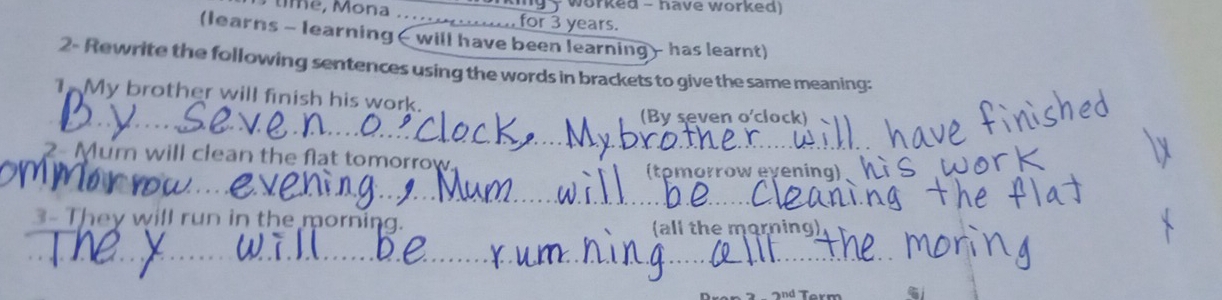 time, Mona ................ for 3 years.
worked - have worked)
(learns - learning - will have been learning - has learnt)
2- Rewrite the following sentences using the words in brackets to give the same meaning:
1- My brother will finish his work. (By seven o'clock)
By seven o'clock, My brother will have finished
his work
2- Mum will clean the flat tomorrow. (tomorrow evening)
ommorrow evening, Mum will be cleaning the flat
3- They will run in the morning. (all the morning)
They will be rumning all the moring
2nd Term